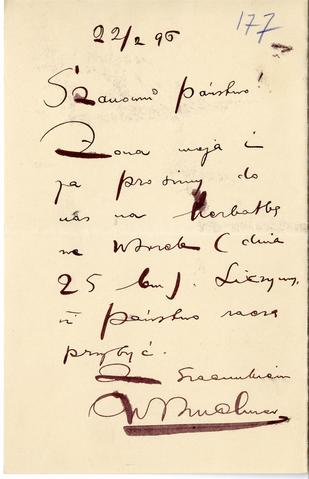 177
22/2 96
Szanowni państwo!
Żona moja i
ja prosimy do
nas na herbatkę
we wtorek (dnia
25 bm). Liczymy,
iż państwo raczą
przybyć.
Z szacunkiem